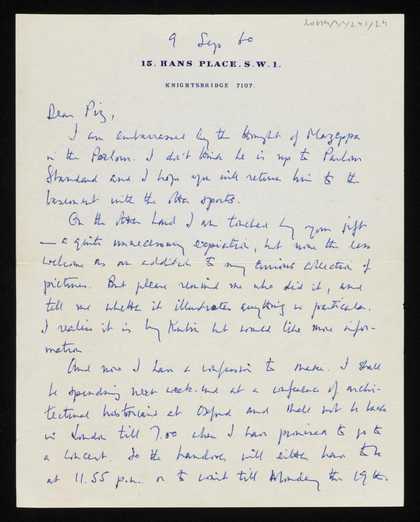 9 Sep 60
15. HANS PLACE. S.W.1.
KNIGHTSBRIDGE 7107.
Dear Piz,
I am embarrassed by the thought of Mazeppa
in the Parlour. I don't think he is up to Parlour
Standard and I hope you will return him to the
basement with the other sports.
On the other hand I am touched by your gift
— a quite unnecessary expiation, but none the less
welcome as an addition to my curious collection of
pictures. But please remind me who did it, and
tell me whether it illustrates anything in particular.
I realise it is by Kubin but would like more infor-
mation.
And now I have a confession to make. I shall
be spending next week-end at a conference of archi-
tectural historians at Oxford and shall not be back
in London till 7.00 when I have promised to go to
a concert. So the handover will either have to be
at 11.55 p.m. or to wait till Monday the 19th.